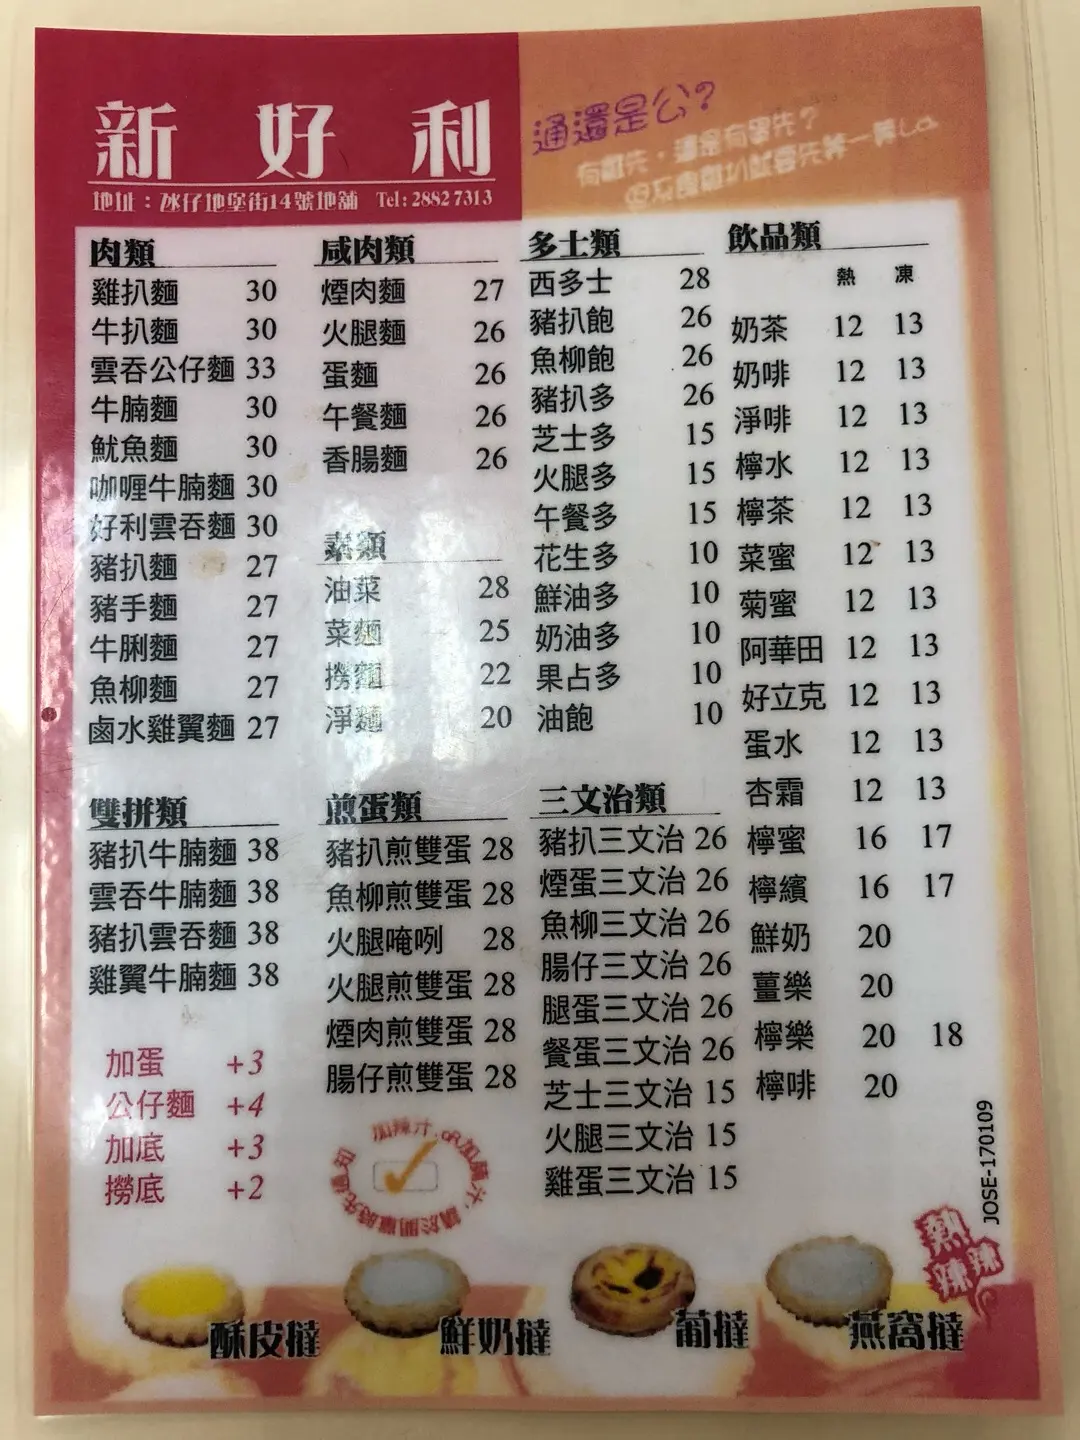 新好利
地址：氹仔地堡街14號地舖 Tel: 2882 7313
通還是公?
肉類
雞扒麵 30
牛扒麵 30
雲吞公仔麵 33
牛腩麵 30
魷魚麵 30
咖喱牛腩麵 30
好利雲吞麵 30
豬扒麵 27
豬手麵 27
牛脷麵 27
魚柳麵 27
鹵水雞翼麵 27
雙拼類
豬扒牛腩麵 38
雲吞牛腩麵 38
豬扒雲吞麵 38
雞翼牛腩麵 38
加蛋 +3
公仔麵 +4
加底 +3
撈底 +2
咸肉類
煙肉麵 27
火腿麵 26
蛋麵 26
午餐麵 26
香腸麵 26
素類
油菜 28
菜麵 25
撈麵 22
淨麵 20
煎蛋類
豬扒煎雙蛋 28
魚柳煎雙蛋 28
火腿唵咧 28
火腿煎雙蛋 28
煙肉煎雙蛋 28
腸仔煎雙蛋 28
多士類
西多士 28
豬扒飽 26
魚柳飽 26
豬扒多 26
芝士多 15
火腿多 15
午餐多 15
花生多 10
鮮油多 10
奶油多 10
果占多 10
油飽 10
三文治類
豬扒三文治 26
煙蛋三文治 26
魚柳三文治 26
腸仔三文治 26
腿蛋三文治 26
餐蛋三文治 26
芝士三文治 15
火腿三文治 15
雞蛋三文治 15
飲品類
熱 凍
奶茶 12 13
奶啡 12 13
淨啡 12 13
檸水 12 13
檸茶 12 13
菜蜜 12 13
菊蜜 12 13
阿華田 12 13
好立克 12 13
蛋水 12 13
杏霜 12 13
檸蜜 16 17
檸繽 16 17
鮮奶 20
薑樂 20
檸樂 20 18
檸啡 20
JOSE-170109
熱辣辣
酥皮撻
鮮奶撻
葡撻
燕窩撻